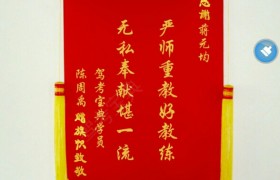 感谢蒋元均
严师重教好教练
无私奉献堪一流
驾考宝典学员
陈周禹赠旗帜致敬